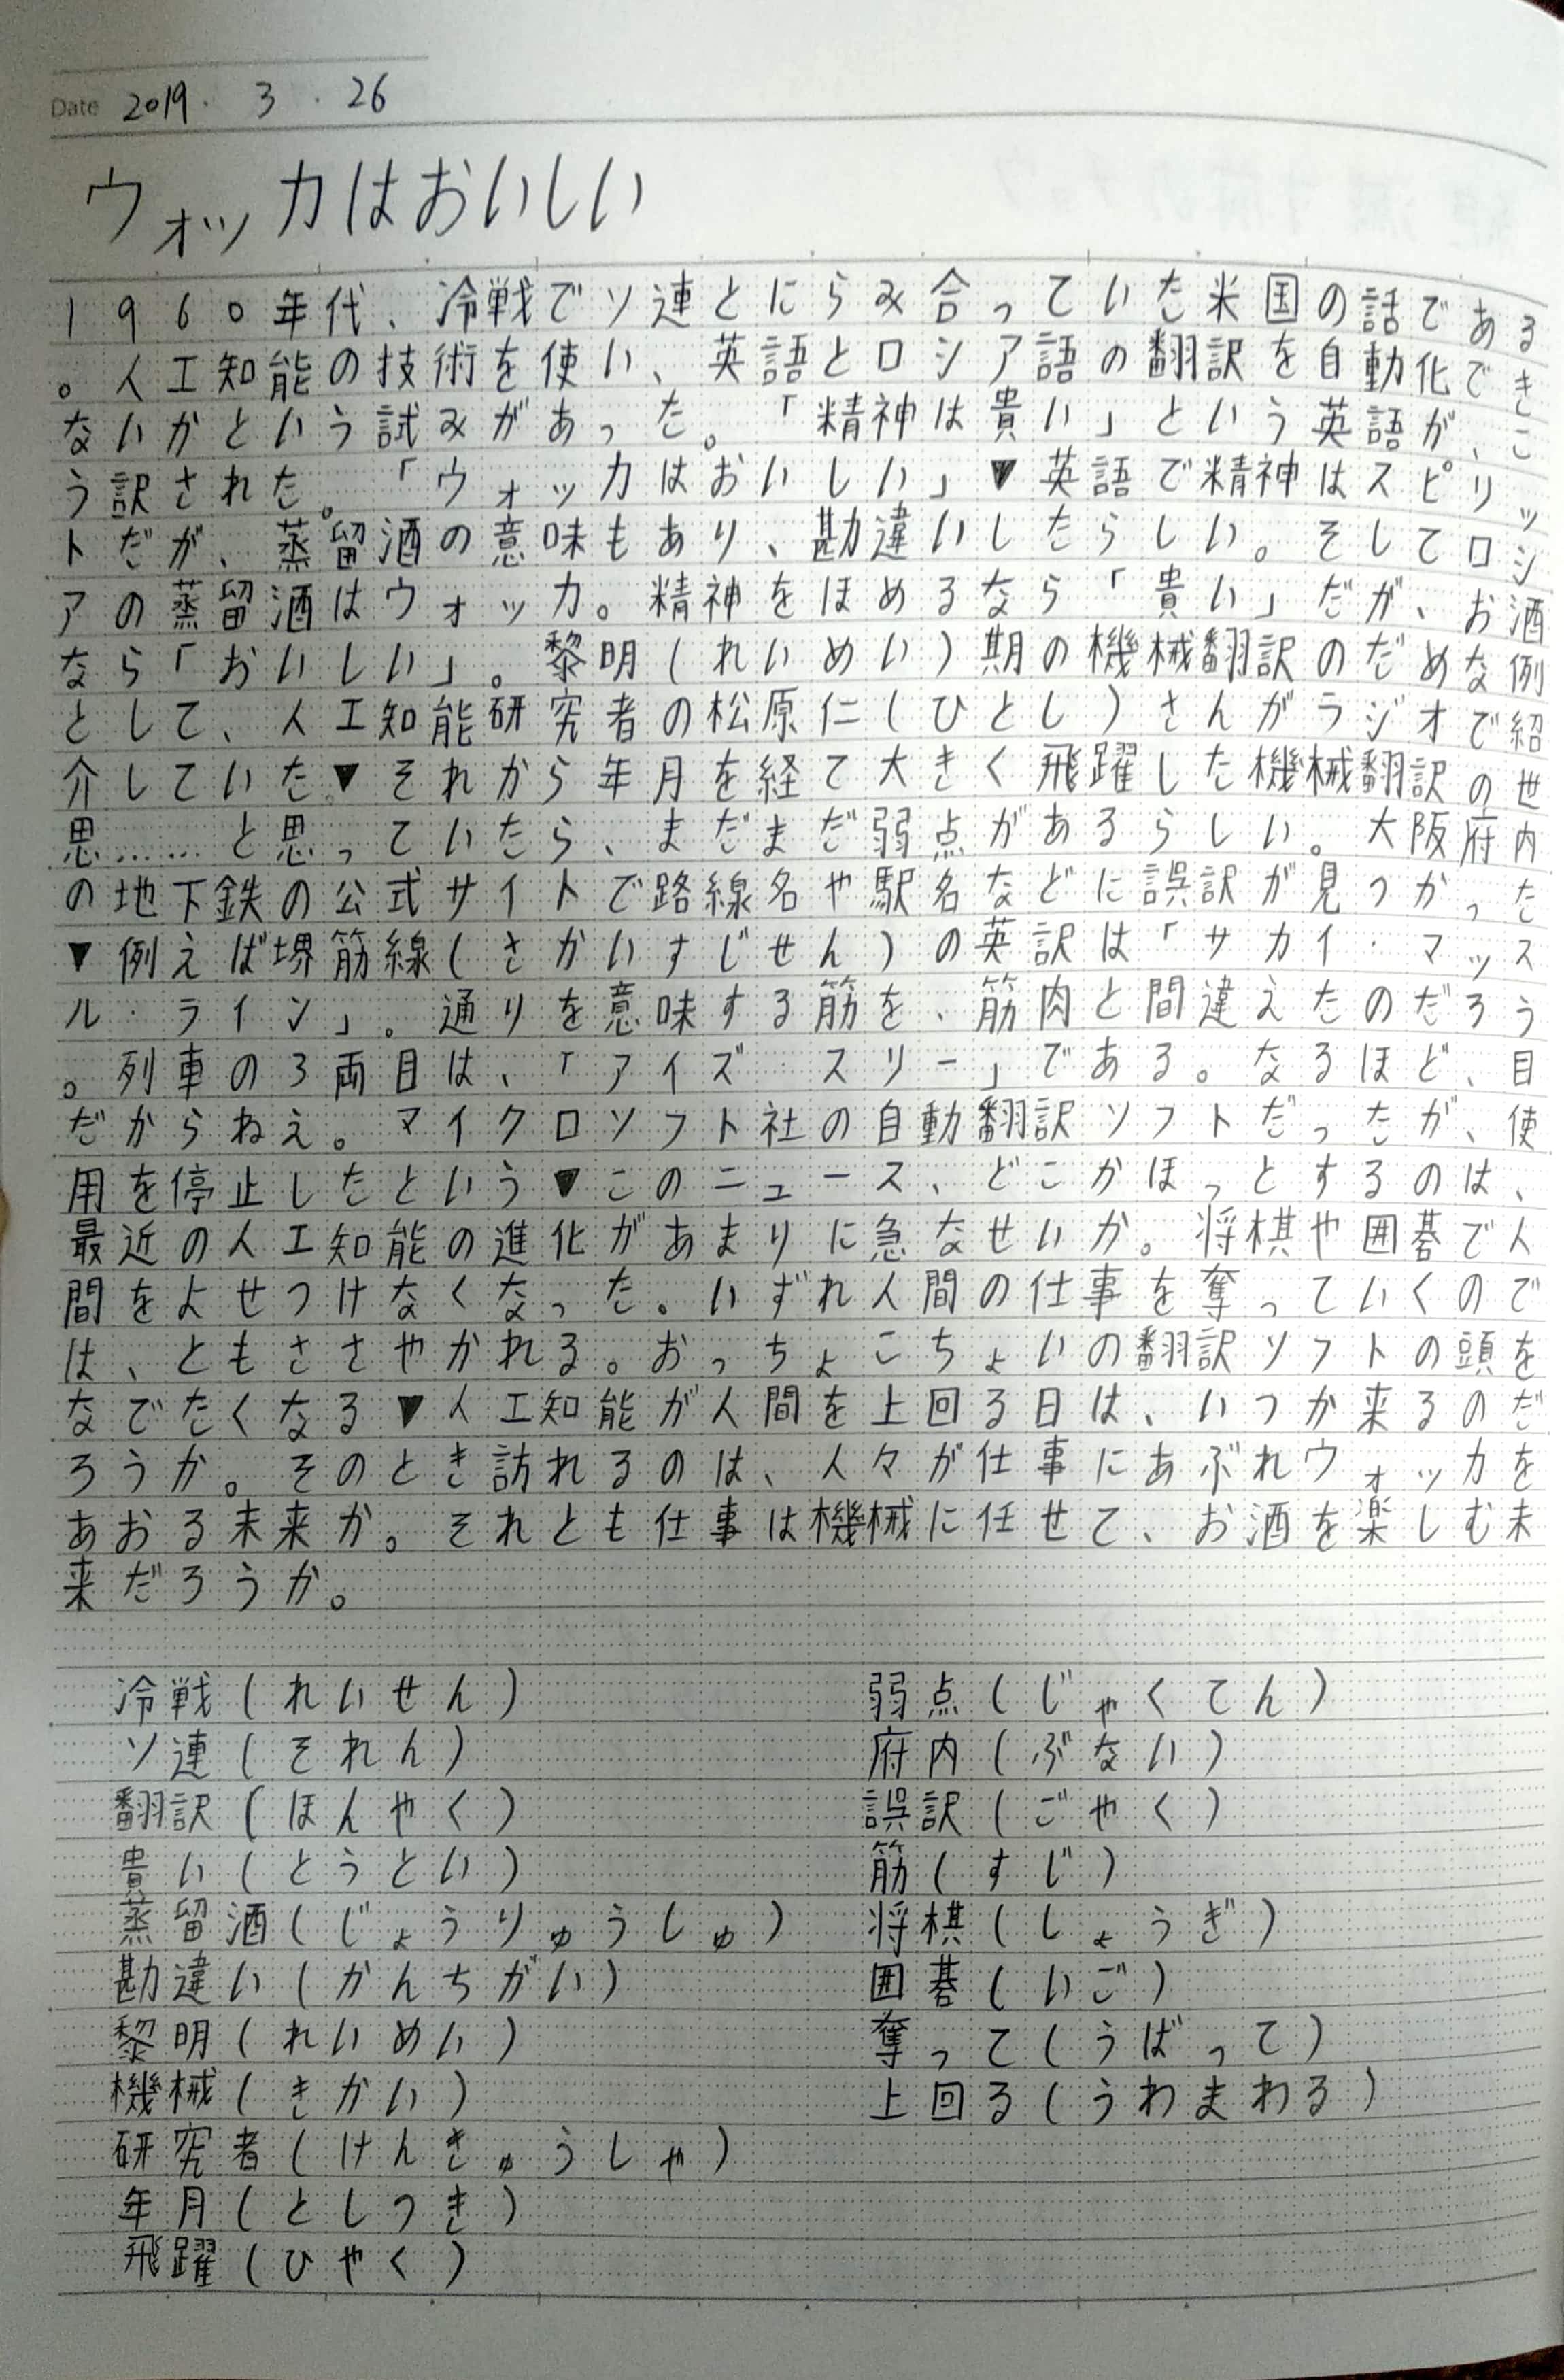 Date 2019. 3. 26
ウォッカはおいしい
1960年代、冷戦でソ連とにらみ合っていた米国の話である
。人工知能の技術を使い、英語とロシア語の翻訳を自動化でき
ないかという試みがあった。「精神は貴い」という英語が、こ
う訳された。「ウォッカはおいしい」▼英語で精神はスピリッ
トだが、蒸留酒の意味もあり、勘違いしたらしい。そしてロシ
アの蒸留酒はウォッカ。精神をほめるなら「貴い」だが、お酒
なら「おいしい」。黎明(れいめい)期の機械翻訳のだめな例
として、人工知能研究者の松原仁(ひとし)さんがラジオで紹
介していた▼それから年月を経て大きく飛躍した機械翻訳の世
思……と思っていたら、まだまだ弱点があるらしい。大阪府内
の地下鉄の公式サイトで路線名や駅名などに誤訳が見つかった
▼例えば堺筋線(さかいすじせん)の英訳は「サカイ・マッス
ル・ライン」。通りを意味する筋を、筋肉と間違えたのだろう
。列車の3両目は、「アイズ スリー」である。なるほど、目
だからねえ。マイクロソフト社の自動翻訳ソフトだったが、使
用を停止したという▼このニュース、どこかほっとするのは、
最近の人工知能の進化があまりに急なせいか。将棋や囲碁で人
間をよせつけなくなった。いずれ人間の仕事を奪っていくので
は、ともささやかれる。おっちょこちょいの翻訳ソフトの頭を
なでたくなる▼人工知能が人間を上回る日は、いつか来るのだ
ろうか。そのとき訪れるのは、人々が仕事にあぶれウォッカを
あおる未来か。それとも仕事は機械に任せて、お酒を楽しむ未
来だろうか。
冷戦(れいせん)
ソ連(それん)
翻訳(ほんやく)
貴い(とうとい)
蒸留酒(じょうりゅうしゅ)
勘違い(かんちがい)
黎明(れいめい)
機械(きかい)
研究者(けんきゅうしゃ)
年月(としつき)
飛躍(ひやく)
弱点(じゃくてん)
府内(ぶない)
誤訳(ごやく)
筋(すじ)
将棋(しょうぎ)
囲碁(いご)
奪って(うばって)
上回る(うわまわる)